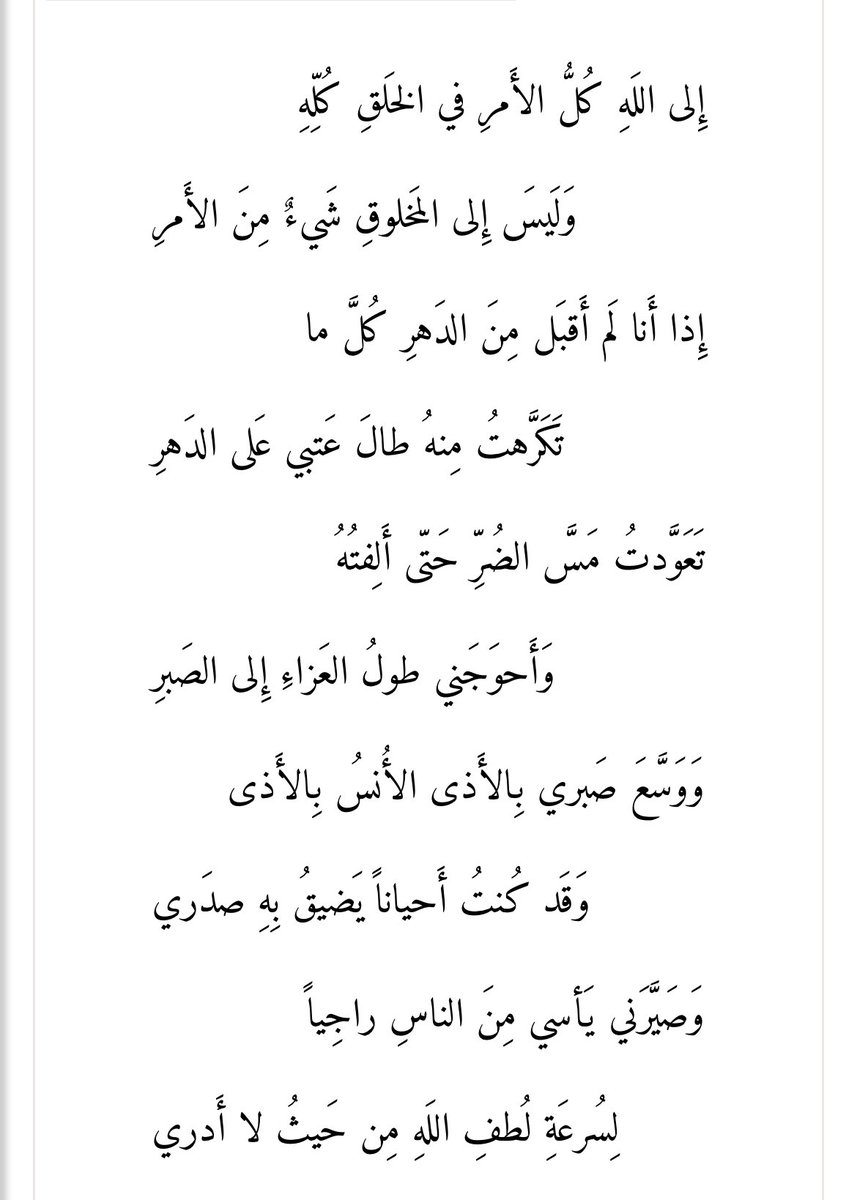 إِلى اللَهِ كُلُّ الأَمرِ في الخَلقِ كُلِّهِ
وَلَيسَ إِلى المَخلوقِ شَيءٌ مِنَ الأَمرِ
إِذا أَنا لَم أَقبَل مِنَ الدَهرِ كُلَّ ما
تَكَرَّهتُ مِنهُ طالَ عَتبي عَلى الدَهرِ
تَعَوَّدتُ مَسَّ الضُرِّ حَتّى أَلِفتُهُ
وَأَحوَجَني طولُ العَزاءِ إِلى الصَبرِ
وَوَسَّعَ صَبري بِالأَذى الأُنسُ بِالأَذى
وَقَد كُنتُ أَحياناً يَضيقُ بِهِ صدَري
وَصَيَّرَني يَأسي مِنَ الناسِ راجِياً
لِسُرعَةِ لُطفِ اللَهِ مِن حَيثُ لا أَدري